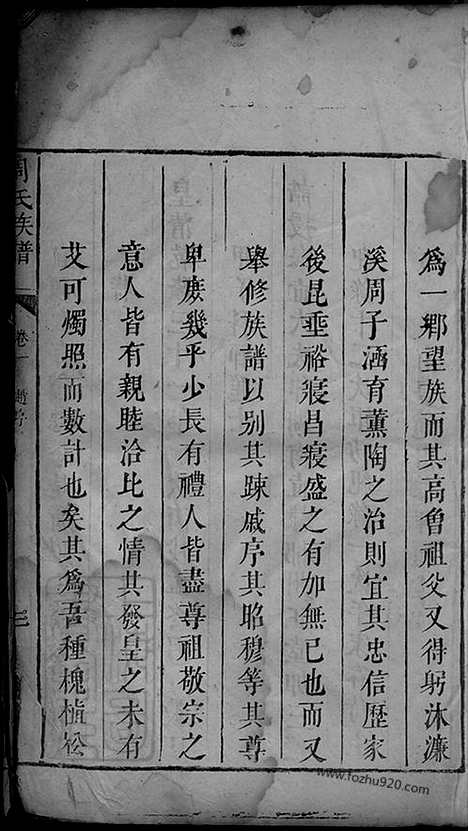 為一鄉望族而其高曾祖父又得躬沐濂
溪周子涵育薰陶之治則宜其忠信歷家
後昆垂裕寖昌寖盛之有加無已也而又
舉修族譜以别其踈戚序其昭穆等其尊
卑庶幾乎少長有禮人皆盡尊祖敬宗之
意人皆有親睦洽比之情其發皇之未有
艾可燭照而數計也矣其為吾種槐植松
周氏族譜 卷一 趙序 三
www.fozhu920.com